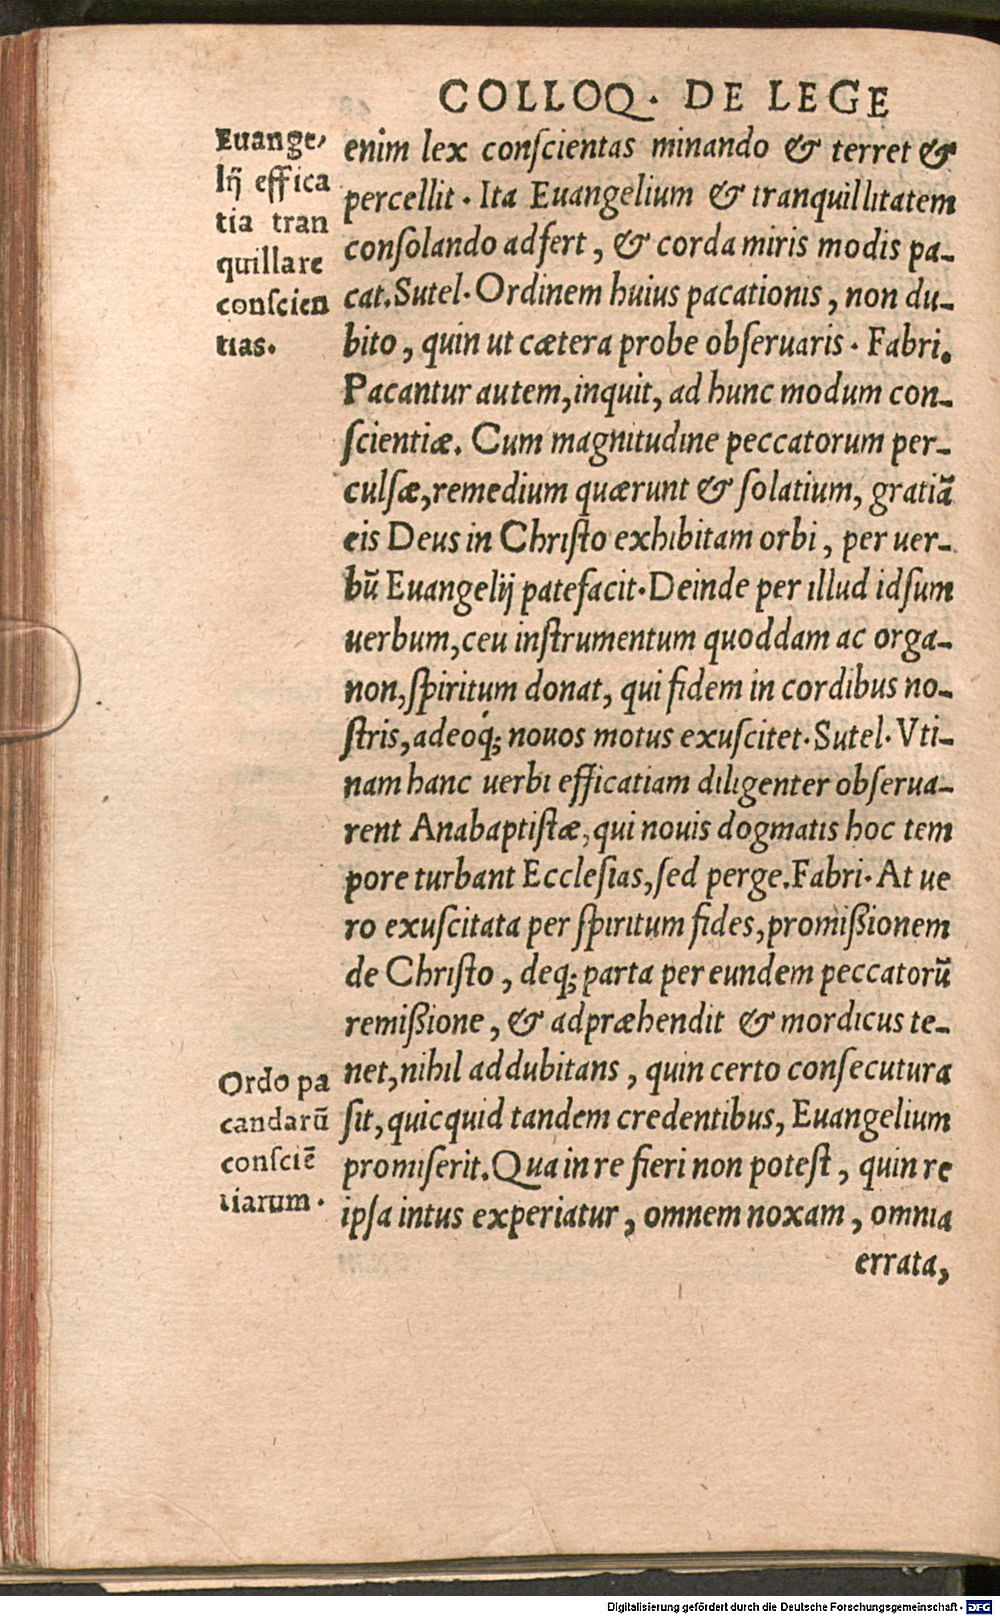 COLLOQ. DE LEGE
Euange-
lij effica
tia tran
quillare
conscien
tias.
enim lex conscientas minando & terret &
percellit. Ita Euangelium & tranquillitatem
consolando adfert, & corda miris modis pa-
cat. Sutel. Ordinem huius pacationis, non du-
bito, quin ut cætera probe obseruaris. Fabri.
Pacantur autem, inquit, ad hunc modum con-
scientiæ. Cum magnitudine peccatorum per-
culsæ, remedium quærunt & solatium, gratiã
eis Deus in Christo exhibitam orbi, per uer-
bũ Euangelij patefacit. Deinde per illud idsum
uerbum, ceu instrumentum quoddam ac orga-
non, spiritum donat, qui fidem in cordibus no-
stris, adeoq́; nouos motus exuscitet. Sutel. Vti-
nam hanc uerbi efficatiam diligenter obserua-
rent Anabaptistæ, qui nouis dogmatis hoc tem
pore turbant Ecclesias, sed perge. Fabri. At ue
ro exuscitata per spiritum fides, promißionem
de Christo, deq; parta per eundem peccatorũ
remißione, & adpræhendit & mordicus te-
net, nihil addubitans, quin certo consecutura
sit, quicquid tandem credentibus, Euangelium
promiserit. Qua in re fieri non potest, quin re
ipsa intus experiatur, omnem noxam, omnia
errata,
Ordo pa
candarũ
consciẽ
tiarum.
Digitalisierung gefördert durch die Deutsche Forschungsgemeinschaft - DFG